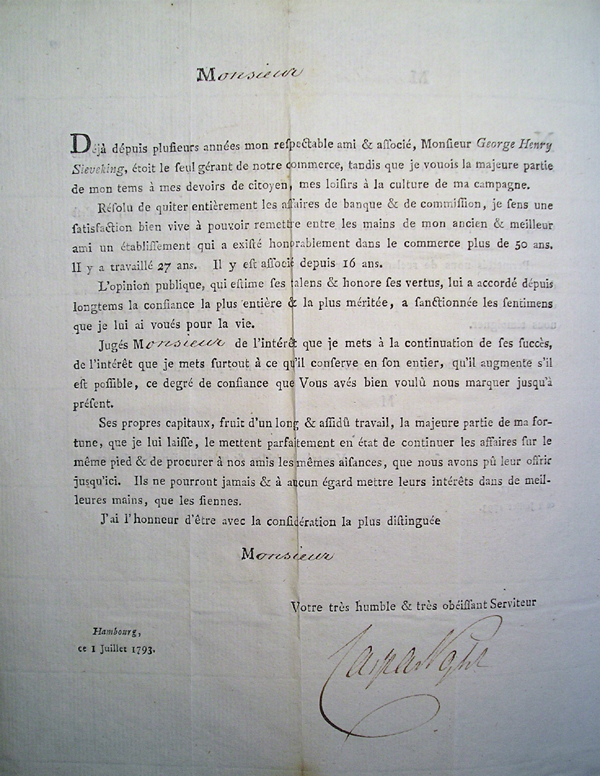 Monsieur
Déjà dépuis plusieurs années mon respectable ami & associé, Monsieur George Henry
Sieveking, étoit le seul gérant de notre commerce, tandis que je vouois la majeure partie
de mon tems à mes devoirs de citoyen, mes loisirs à la culture de ma campagne.
Résolu de quiter entièrement les affaires de banque & de commission, je sens une
satisfaction bien vive à pouvoir remettre entre les mains de mon ancien & meilleur
ami un établissement qui a existé honorablement dans le commerce plus de 50 ans.
Il y a travaillé 27 ans. Il y est associé depuis 16 ans.
L'opinion publique, qui estime ses talens & honore ses vertus, lui a accordé dépuis
longtems la confiance la plus entière & la plus méritée, a sanctionnée les sentimens
que je lui ai voués pour la vie.
Jugés Monsieur de l'intérêt que je mets à la continuation de ses succès,
de l'intérêt que je mets surtout à ce qu'il conserve en son entier, qu'il augmente s'il
est possible, ce degré de confiance que Vous avés bien voulû nous marquer jusqu'à
présent.
Ses propres capitaux, fruit d'un long & assidû travail, la majeure partie de ma for-
tune, que je lui laisse, le mettent parfaitement en état de continuer les affaires sur le
même pied & de procurer à nos amis les mêmes aisances, que nous avons pû leur offrir
jusqu'ici. Ils ne pourront jamais & à aucun égard mettre leurs intérêts dans de meil-
leures mains, que les siennes.
J'ai l'honneur d'être avec la considération la plus distinguée
Monsieur
Votre très humble & très obéissant Serviteur
Hambourg,
ce 1 Juillet 1793.
Caspar Voght